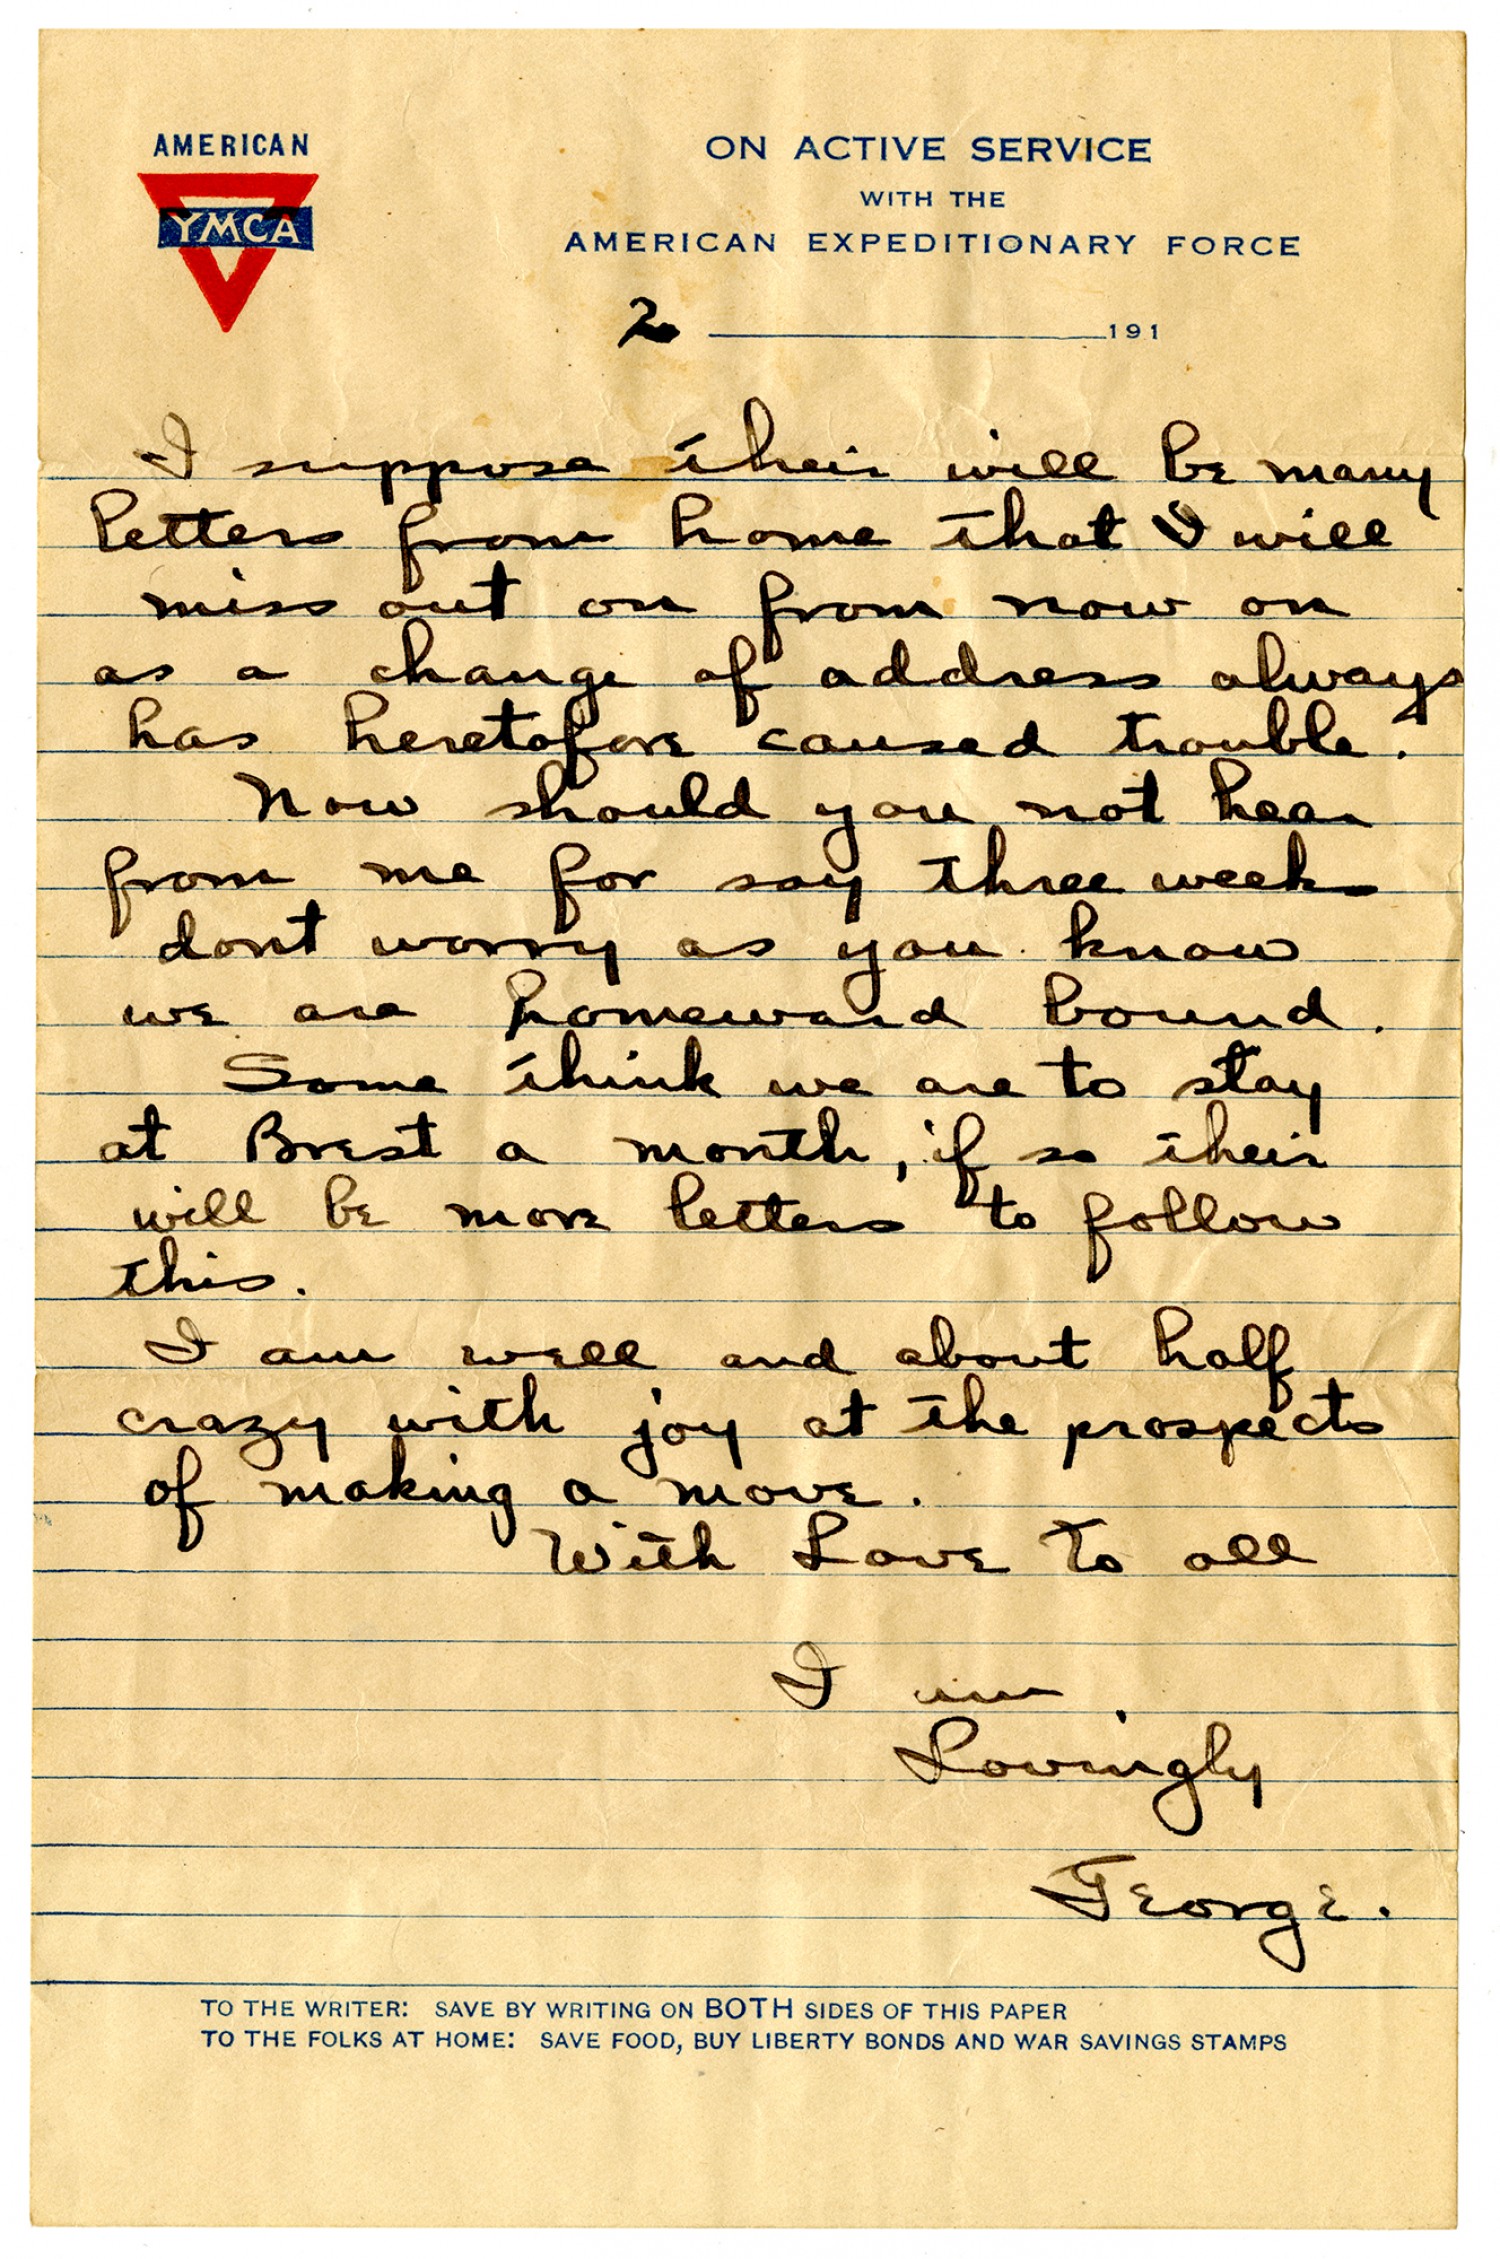 AMERICAN
YMCA
ON ACTIVE SERVICE
WITH THE
AMERICAN EXPEDITIONARY FORCE
2 191
I suppose their will be many
letters from home that I will
miss out on from now on
as a change of address always
has heretofore caused trouble.
Now should you not hear
from me for say three weeks
dont worry as you know
we are homeward bound.
Some think we are to stay
at Brest a month, if so their
will be more letters to follow
this.
I am well and about half
crazy with joy at the prospects
of making a move.
With Love to all
I am,
Lovingly
George.
TO THE WRITER: SAVE BY WRITING ON BOTH SIDES OF THIS PAPER
TO THE FOLKS AT HOME: SAVE FOOD, BUY LIBERTY BONDS AND WAR SAVINGS STAMPS